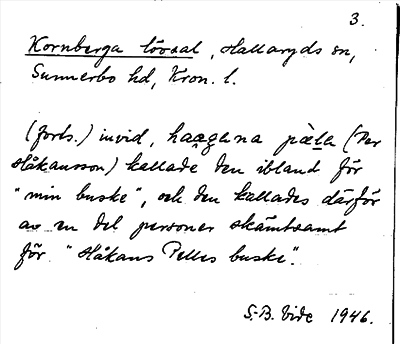 3.
Kornberga lövsal, Hallaryds sn,
Sunnerbo hd, Kron. l.
(forts.) invid, haagana pälla (Per
Håkansson) kallade den ibland för
"min buske", och den kallades därför
av en del personer skämtsamt
för "Håkans Pelles buske".
S.-B. Vide 1946.